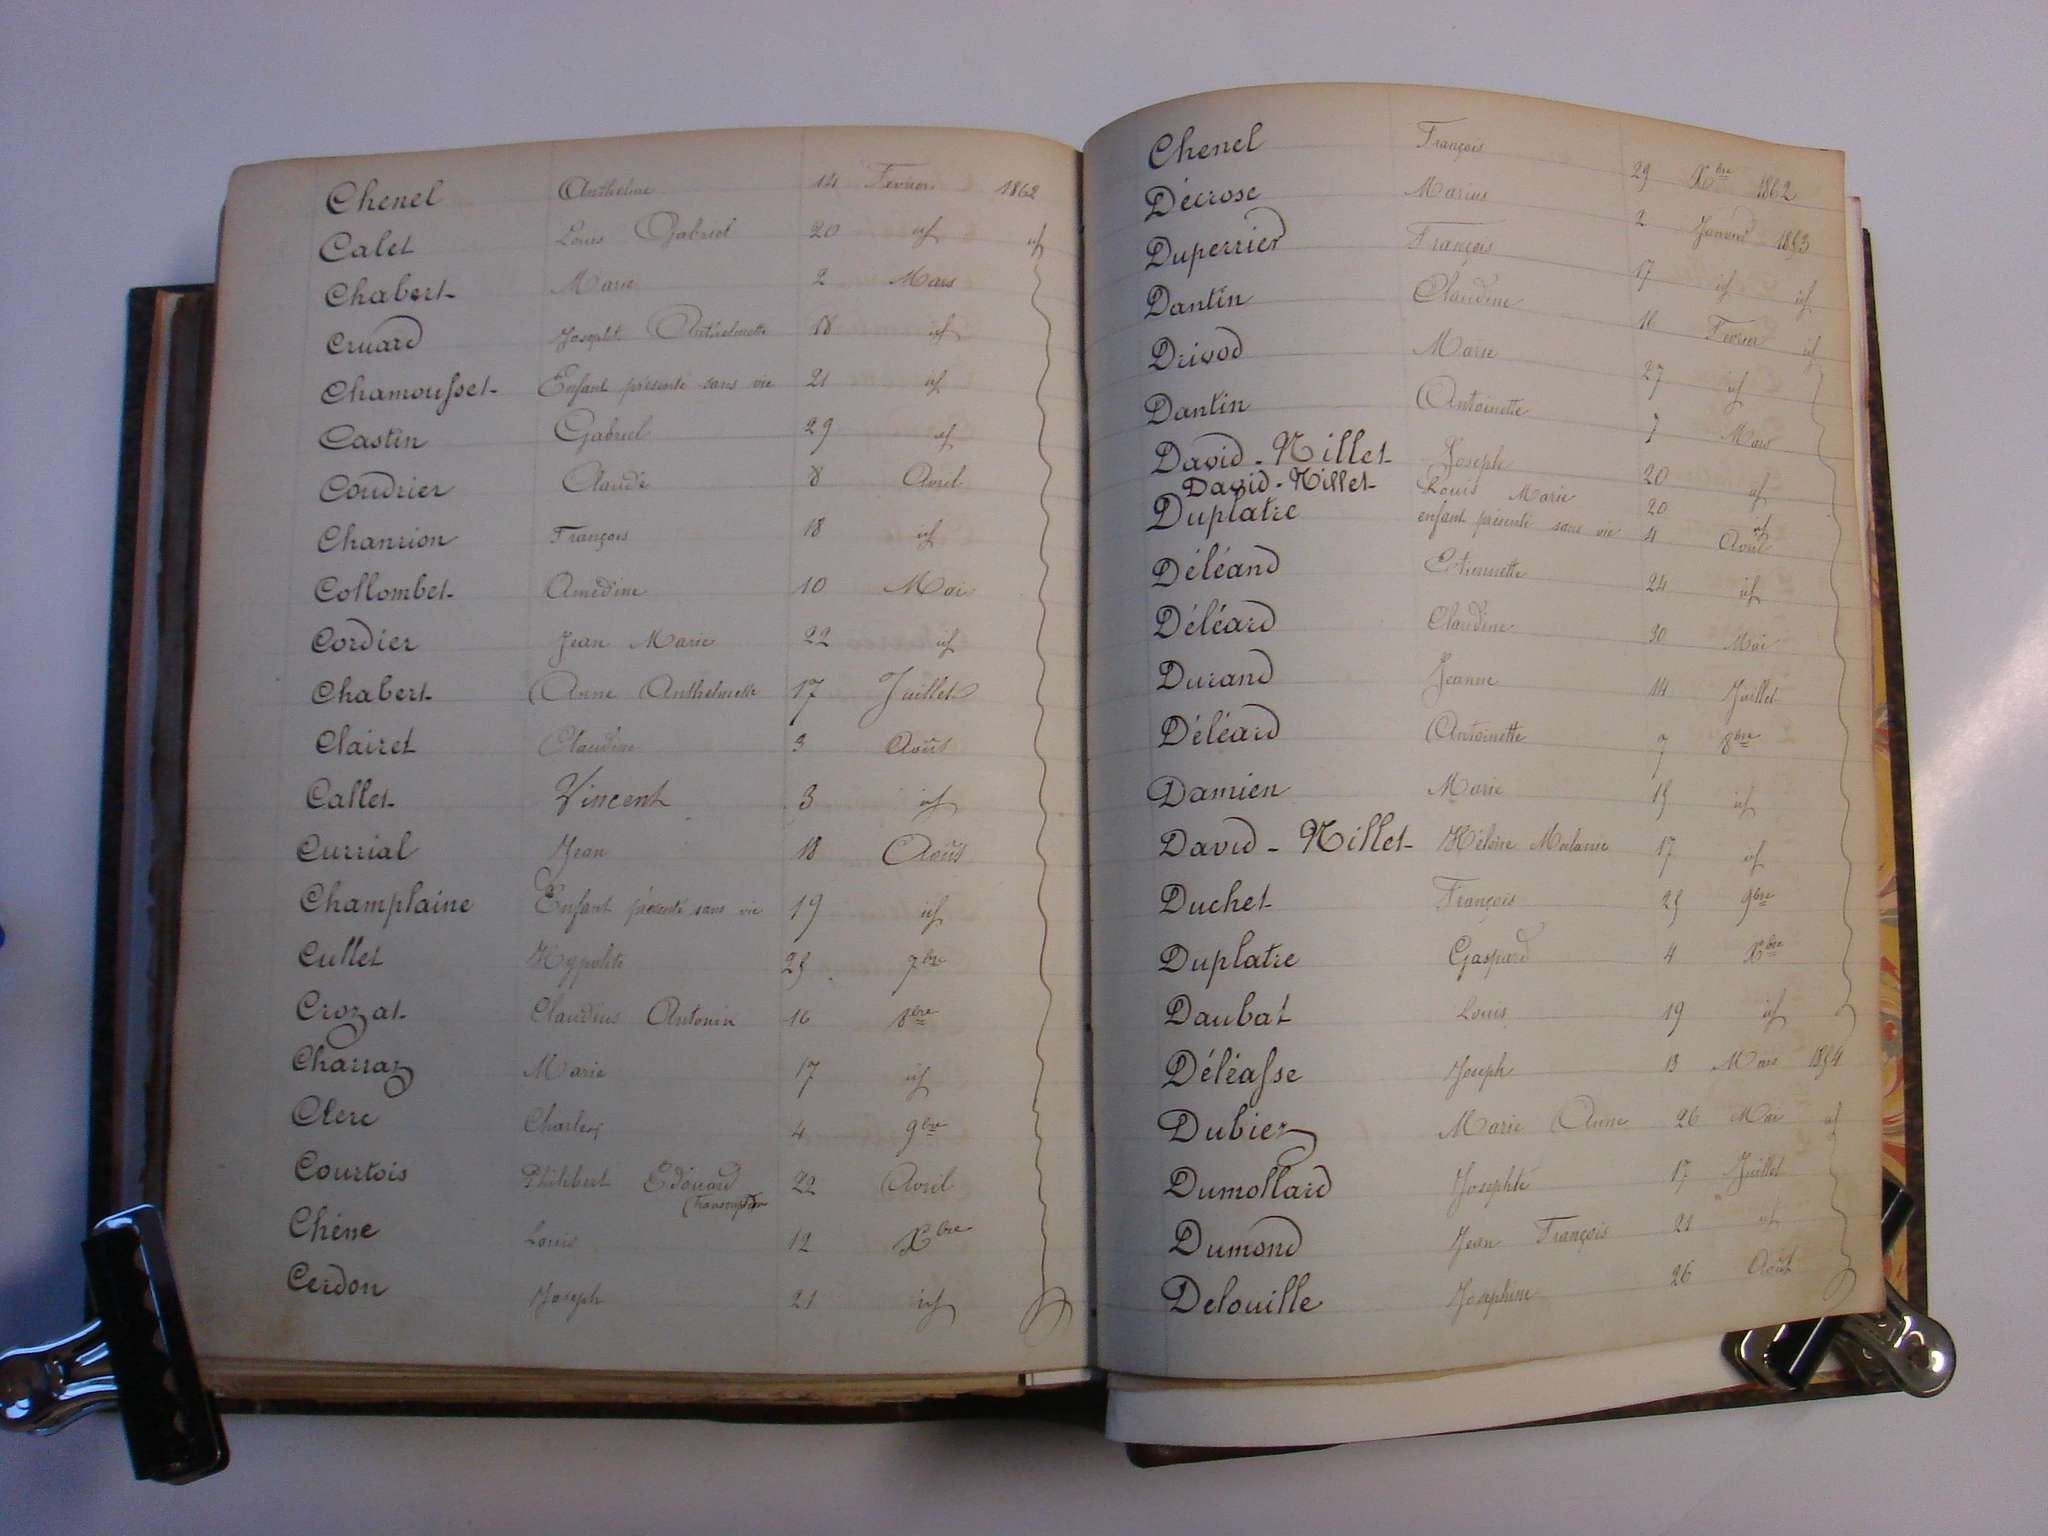 Chenel Anthelme 14 Fevrier 1862
Calet Louis Gabriel 20 id id
Chabert Marie 2 Mars
Cruard Josephte Anthelmette 18 id
Chamousset Enfant présenté sans vie 21 id
Castin Gabriel 29 id
Coudrier Claude 8 Avril
Chanrion François 18 id
Collombet Amédine 10 Mai
Cordier Jean Marie 22 id
Chabert Anne Anthelmette 17 Juillet
Clairet Claudine 3 Août
Callet Vincent 3 id
Currial Jean 18 Août
Champlaine Enfant présenté sans vie 19 id
Cullet Hypolite 25 7bre
Crozat Claudius Antonin 16 8bre
Charraz Marie 17 id
Clerc Charles 4 9bre
Courtois Philibert Edouard 22 Avril
(Transcription
Chêne Louis 12 Xbre
Cerdon Joseph 21 id
Chenel François 29 Xbre 1862
Décrose Marius 2 Janvier 1853
Duperrier François 17 id id
Dantin Claudine 16 Fevrier id
Drivod Marie 27 id
Dantin Antoinette 7 Mars
David-Nillet Joseph 20 id
David-Nillet Louis Marie 20 id
Duplatre enfant présenté sans vie 4 Avril
Déléand Etiennette 24 id
Déléard Claudine 30 Mai
Durand Jeanne 14 Juillet
Déléard Antoinette 7 8bre
Damien Marie 15 id
David-Nillet Héloïse Melanie 17 id
Duchet François 25 9bre
Duplatre Gaspard 4 Xbre
Daubat Louis 19 id
Déléasse Joseph 13 Mars 1854
Dubiez Marie Anne 26 Mai id
Dumollard Josephte 17 Juillet
Dumond Jean François 21 id
Delouille Josephine 26 Août